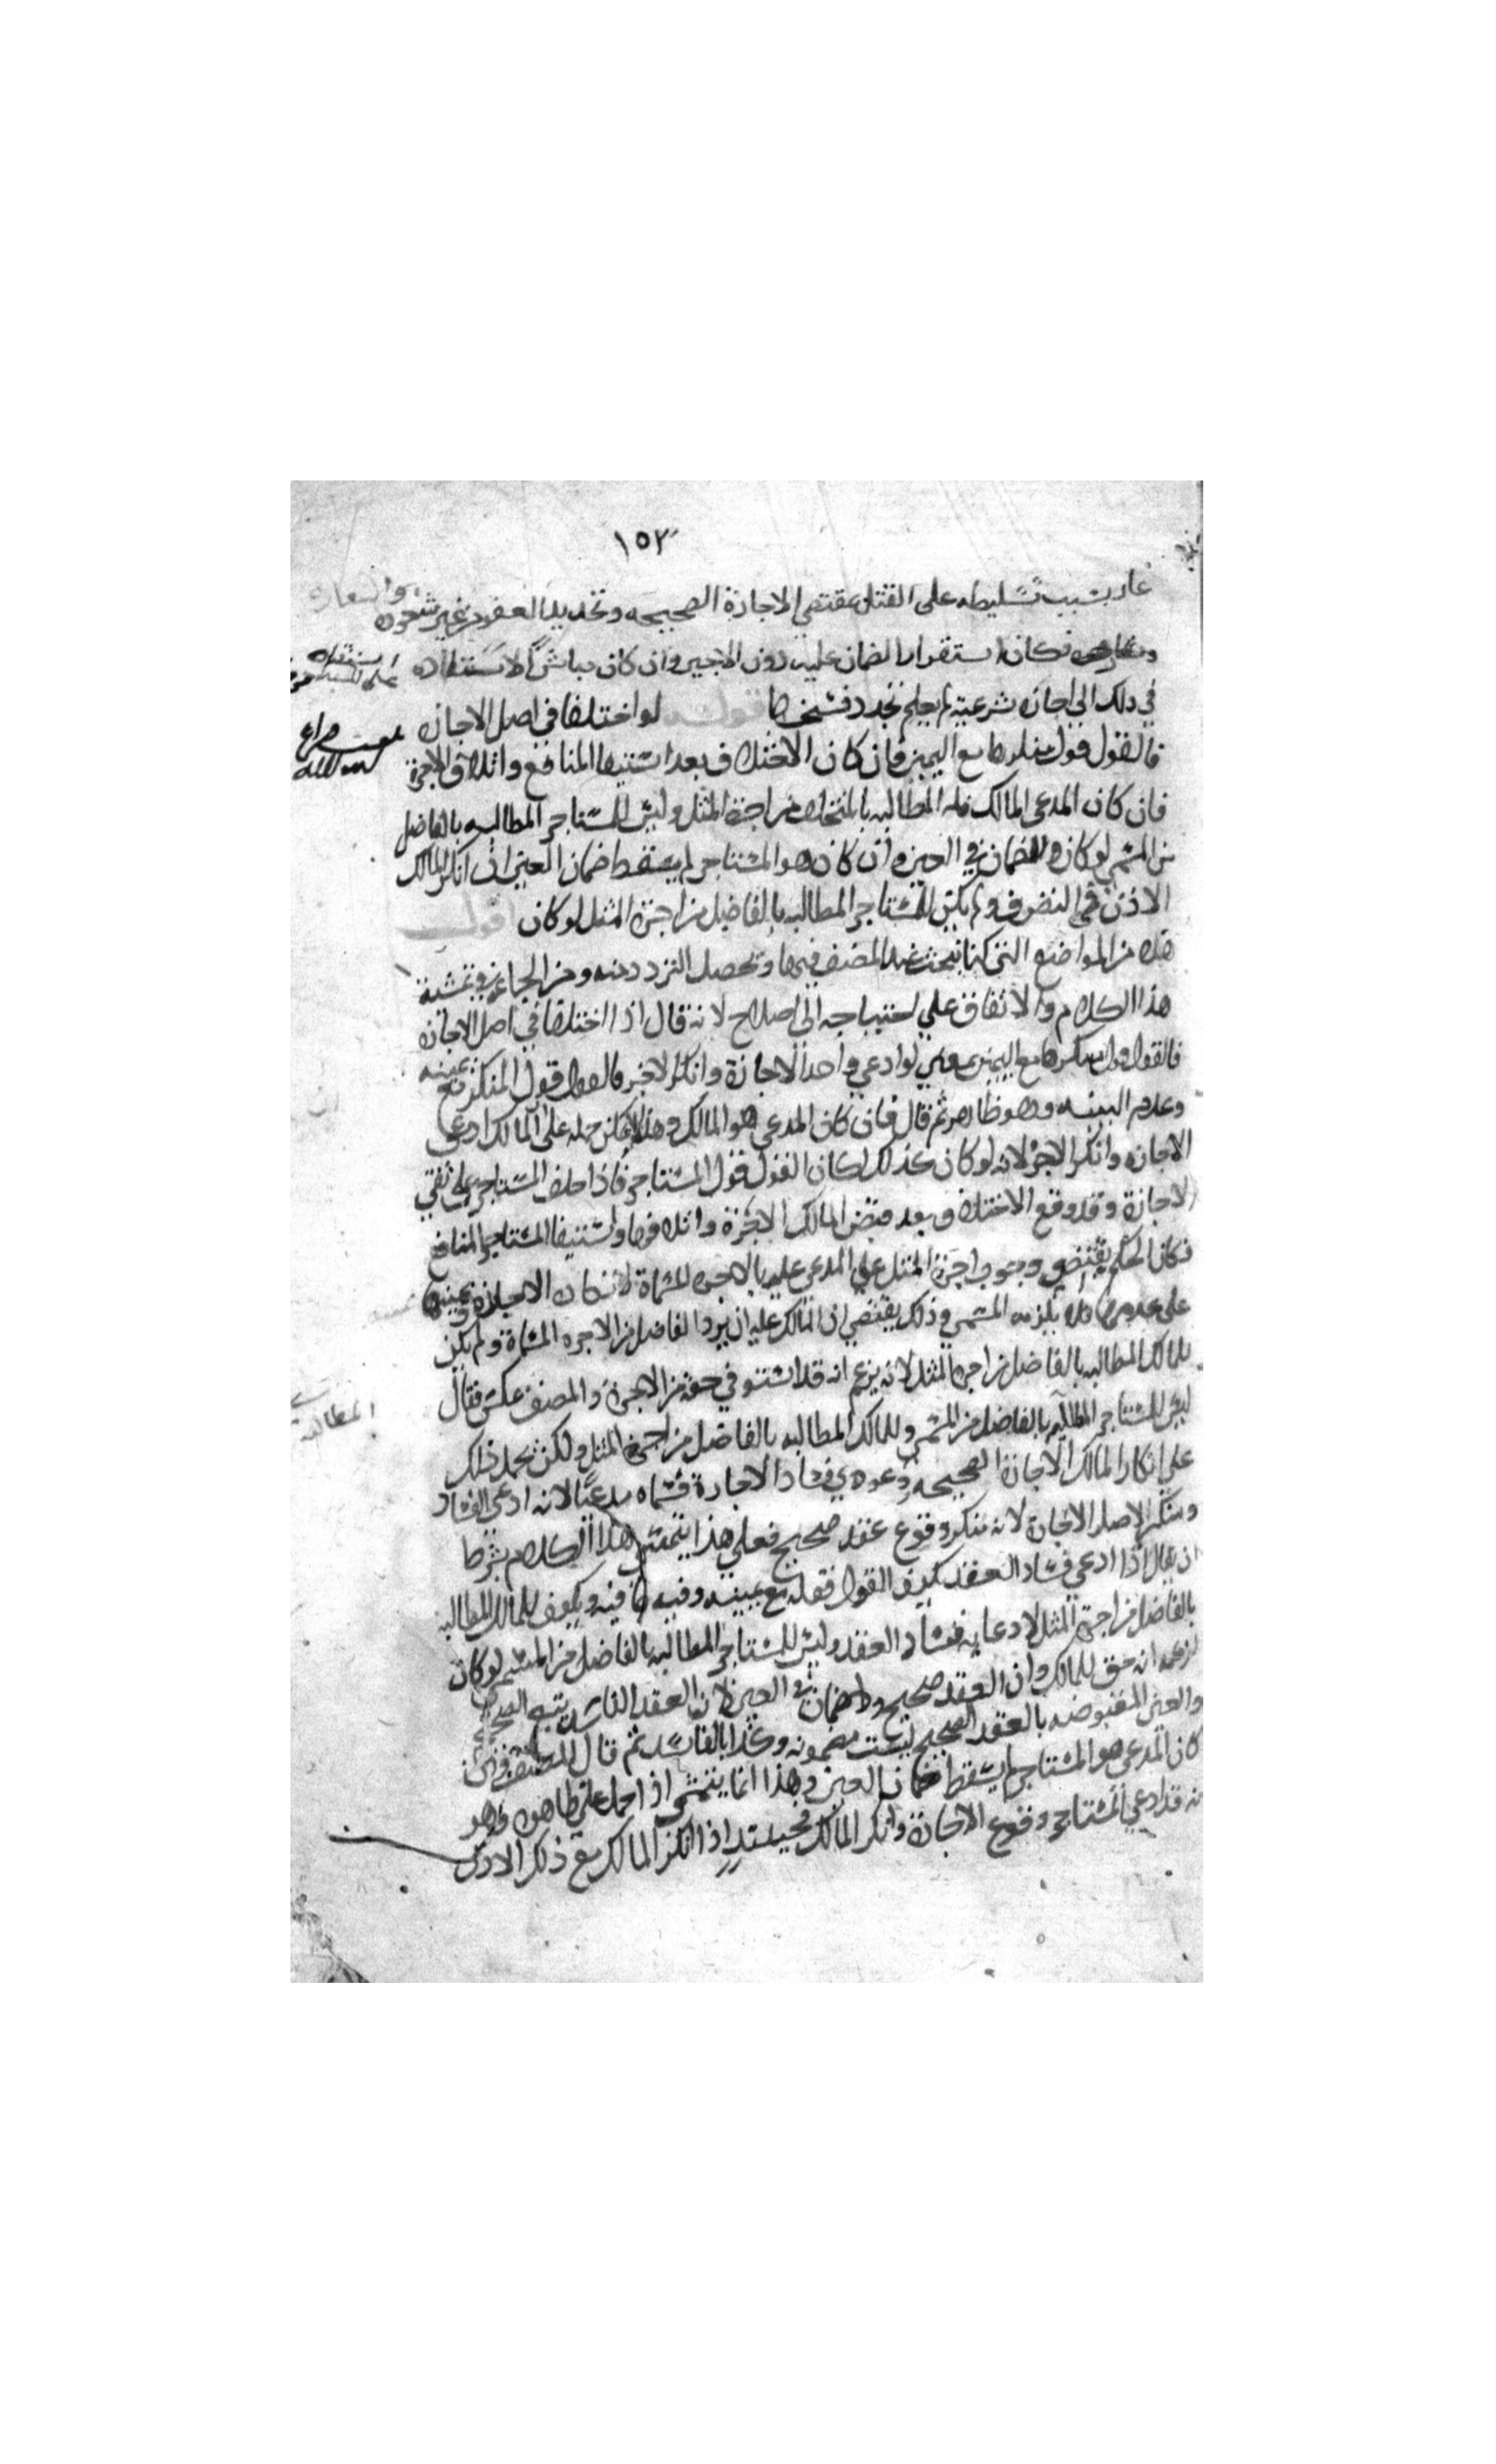 ١٥٢
بسبب تسليطه على القتل بمقتضى الاجارة الصحيحه وتجديد العقد من غير شعوره
فكان استقرار الضمان عليه دون الاجير وان كان مباشرا لاستناده
في ذلك الى اجارة شرعية لم يعلم تجدد فسخها قوله لو اختلفا في اصل الاجارة
فالقول قول منكرها مع اليمين فان كان الاختلاف بعد استيفا المنافع واتلاف الاجرة
فان كان المدعي المالك فله المطالبه بالمتخلف من اجرة المثل وليس للمستاجر المطالبه بالفاضل
من المسمى لو كان ولا ضمان في العين وان كان هو المستاجر لم يسقط ضمان العين ان انكر المالك
الاذن في التصرف ولم يكن للمستاجر المطالبه بالفاضل من اجرة المثل لو كان اقول
هذه من المواضع التي كنا نبحث عند المصنف فيها وتحصل التردد منه ومن الجماعة في تمشية
هذا الكلام والاتفاق على احتياجه الى اصلاح لانه قال اذا اختلفا في اصل الاجارة
فالقول قول منكرها مع اليمين بمعنى لو ادعى واحد الاجارة وانكر الاخر فالقول قول المنكر مع يمينه
وعدم البينه وهو ظاهر ثم قال فان كان المدعي هو المالك وهذا لا يمكن حمله على المالك ادعى
الاجارة وانكر الاجر لانه لو كان كذلك لكان القول قول المستاجر فاذا حلف المستاجر على نفي
الاجارة وقد وقع الاختلاف بعد قبض المالك الاجرة واتلافها واستيفا المستاجر المنافع
فكان الحكم يقتضي وجوب اجرة المثل على المدعى عليه بالاجرة المسماة لانكاره الاجارة ويمينه
على عدمها فلا يلزمه المسمى وذلك يقتضي ان المالك عليه ان يرد الفاضل من الاجرة المسماة ولم يكن
للمالك المطالبه بالفاضل من اجرة المثل لانه يزعم انه قد استوفي حقه من الاجرة والمصنف عكس فقال
ليس للمستاجر المطالبه بالفاضل من المسمى وللمالك المطالبه بالفاضل من اجرة المثل ولكن نحمل ذلك
المطالبه
على انكار المالك الاجارة الصحيحه ودعوي فساد الاجارة فسماه مدعيا لانه ادعى الفساد
ومنكر لاصل الاجارة لانه منكر وقوع عقد صحيح فعلى هذا يتمشى هذا الكلام بشرط
ان يقال اذا ادعى فساد العقد يكون القول قوله مع يمينه وفيه ما فيه ويكون للمالك المطالبه
بالفاضل من اجرة المثل لادعايه فساد العقد وليس للمستاجر المطالبه بالفاضل من المسمى لو كان
لزعمه انه حق للمالك وان العقد صحيح ولا ضمان في العين لان العقد الفاسد يتبع الصحيح
والعين المقبوضه بالعقد الصحيح ليست مضمونه وكذا بالفاسد ثم قال المصنف فان
كان المدعي هو المستاجر لم يسقط ضمان العين وهذا انما يتمشى اذا حمل على ظاهره وهو
انه قد ادعى المستاجر وقوع الاجارة وانكر المالك فحينئذ اذا انكر المالك مع ذلك الاذن